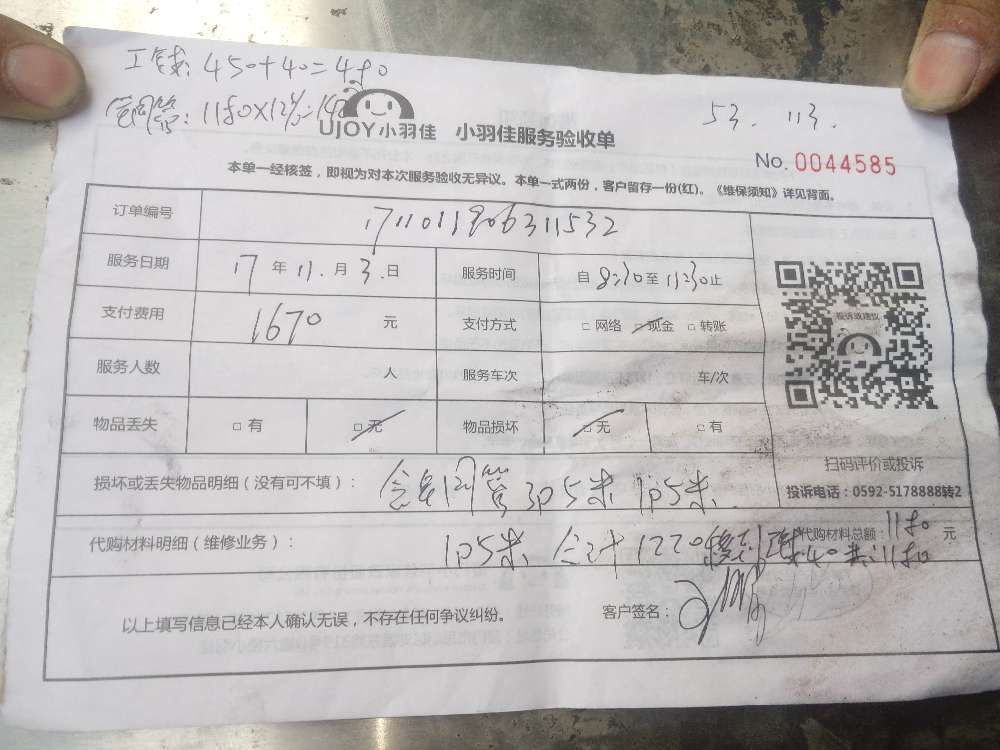 工钱:450+40=490
1180×12%=
53. 113.
UJOY小羽佳 小羽佳服务验收单
No.0044585
本单一经核签,即视为对本次服务验收无异议。本单一式两份,客户留存一份(红)。《维保须知》详见背面。
订单编号 1711011906311532
服务日期 17年11.月3.日 服务时间 自8:30至11:30止
支付费用 1670 元 支付方式 □网络 □现金 □转账
服务人数 人 服务车次 车/次
物品丢失 □有 □无 物品损坏 □无 □有
投诉或建议
扫码评价或投诉
投诉电话:0592-5178888转2
损坏或丢失物品明细(没有可不填): 305米 105米
代购材料明细(维修业务): 105米 合计1220 40 共计1180
代购材料总额:1180元
以上填写信息已经本人确认无误,不存在任何争议纠纷。 客户签名: